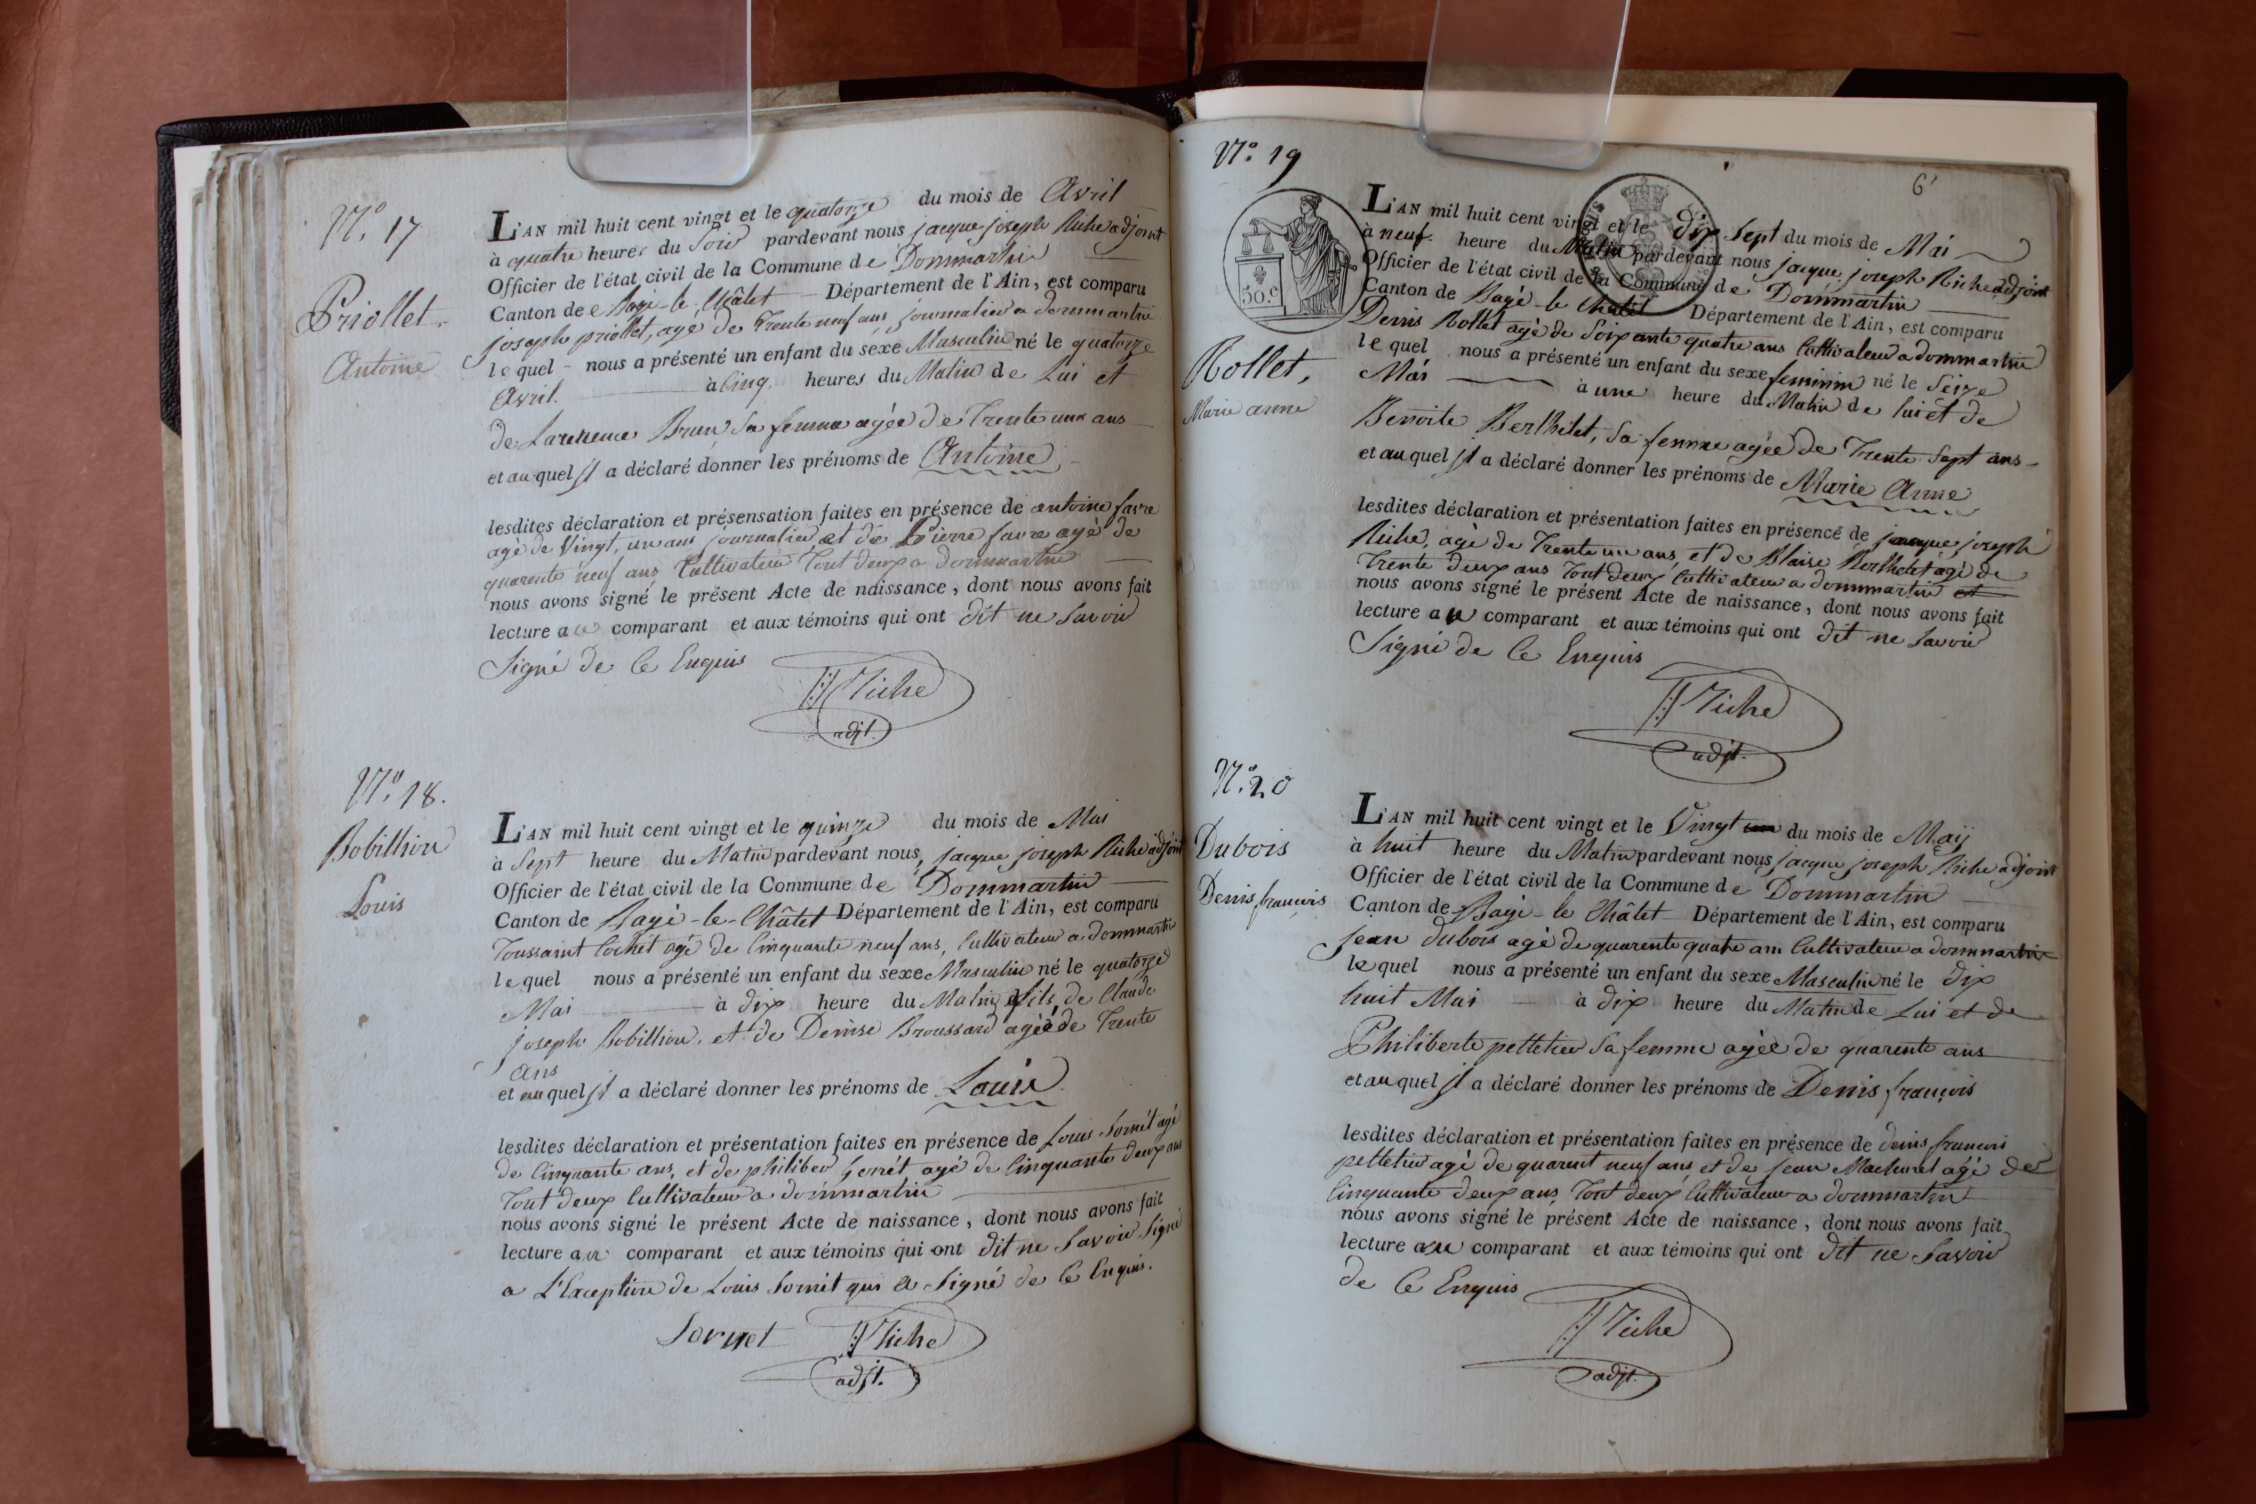 N.° 17
Priollet.
Antoine
L'AN mil huit cent vingt et le quatorze du mois de Avril
à quatre heures du Soir pardevant nous jacque joseph Riche adjoint
Officier de l'état civil de la Commune de Dommartin
Canton de Bagé-le-Châtel Département de l'Ain, est comparu
joseph priollet, agé de Trente neuf ans journalier a dommartin
lequel nous a présenté un enfant du sexe Masculin né le quatorze
Avril à Cinq heures du Matin de Lui et
de Laurence Brun Sa femme agée de Trente un ans
et auquel Il a déclaré donner les prénoms de Antoine
lesdites déclaration et présensation faites en présence de antoine favre
agé de Vingt, un ans journalier et de Pierre favre agé de
quarente neuf ans Cultivateur Tout deux a dommartin
nous avons signé le présent Acte de naissance, dont nous avons fait
lecture au comparant et aux témoins qui ont dit ne Savoir
Signé de Ce Enquis
JJ Riche
adjt.
N.° 18.
Bobillion
Louis
L'AN mil huit cent vingt et le quinze du mois de Mai
à Sept heure du Matin pardevant nous, jacque joseph Riche adjoint
Officier de l'état civil de la Commune de Dommartin
Canton de Bagé-le-Châtel Département de l'Ain, est comparu
Toussaint Cochet agé de Cinquante neuf ans, Cultivateur a dommartin
lequel nous a présenté un enfant du sexe Masculin né le quatorze
Mai à dix heure du Matin fils de Claude
joseph Bobillion et de Denise Broussard agée de Trente
ans
et auquel Il a déclaré donner les prénoms de Louis
lesdites déclaration et présentation faites en présence de Louis Sornét agé
de Cinquante ans, et de philiber Genét agé de Cinquante deux ans
Tout deux Cultivateur a dommartin
nous avons signé le présent Acte de naissance, dont nous avons fait
lecture au comparant et aux témoins qui ont dit ne Savoir Signé
a L'Exception de Louis Sornét qui a Signé de Ce Enquis.
Sornet JJ Riche
adjt.
N.° 19
6
50.c
Rollet,
Marie anne
L'AN mil huit cent vingt et le dix Sept du mois de Mai
à neuf heure du Matin pardevant nous jacque joseph Riche adjoint
Officier de l'état civil de la Commune de Dommartin
Canton de Bagé-le Châtel Département de l'Ain, est comparu
Denis Rollet agé de Soixante quatre ans Cultivateur a dommartin
lequel nous a présenté un enfant du sexe feminin né le Seize
Mai à une heure du Matin de lui et de
Benoite Berthelet, Sa femme agée de Trente Sept ans
et auquel Il a déclaré donner les prénoms de Marie Anne
lesdites déclaration et présentation faites en présence de jacque joseph
Riche, agé de Trente un ans, et de Blaise Berthelet agé de
Trente deux ans Tout deux Cultivateur a dommartin et
nous avons signé le présent Acte de naissance, dont nous avons fait
lecture au comparant et aux témoins qui ont dit ne Savoir
Signé de Ce Enquis
JJ Riche
adjt.
N.° 20
Dubois
Denis françois
L'AN mil huit cent vingt et le Vingt un du mois de Maij
à huit heure du Matin pardevant nous jacque joseph Riche adjoint
Officier de l'état civil de la Commune de Dommartin
Canton de Bagé-le Châtel Département de l'Ain, est comparu
jean dubois agé de quarente quatre ans Cultivateur a dommartin
lequel nous a présenté un enfant du sexe Masculin né le dix
huit Mai à dix heure du Matin de Lui et de
Philiberte pelletier Sa femme agée de quarente ans
et auquel Il a déclaré donner les prénoms de Denis françois
lesdites déclaration et présentation faites en présence de denis francois
pelletier agé de quarent neuf ans et de jean Machuret agé de
Cinquante deux ans, Tout deux Cultivateur a dommartin
nous avons signé le présent Acte de naissance, dont nous avons fait
lecture au comparant et aux témoins qui ont dit ne Savoir
de Ce Enquis
JJ Riche
adjt.